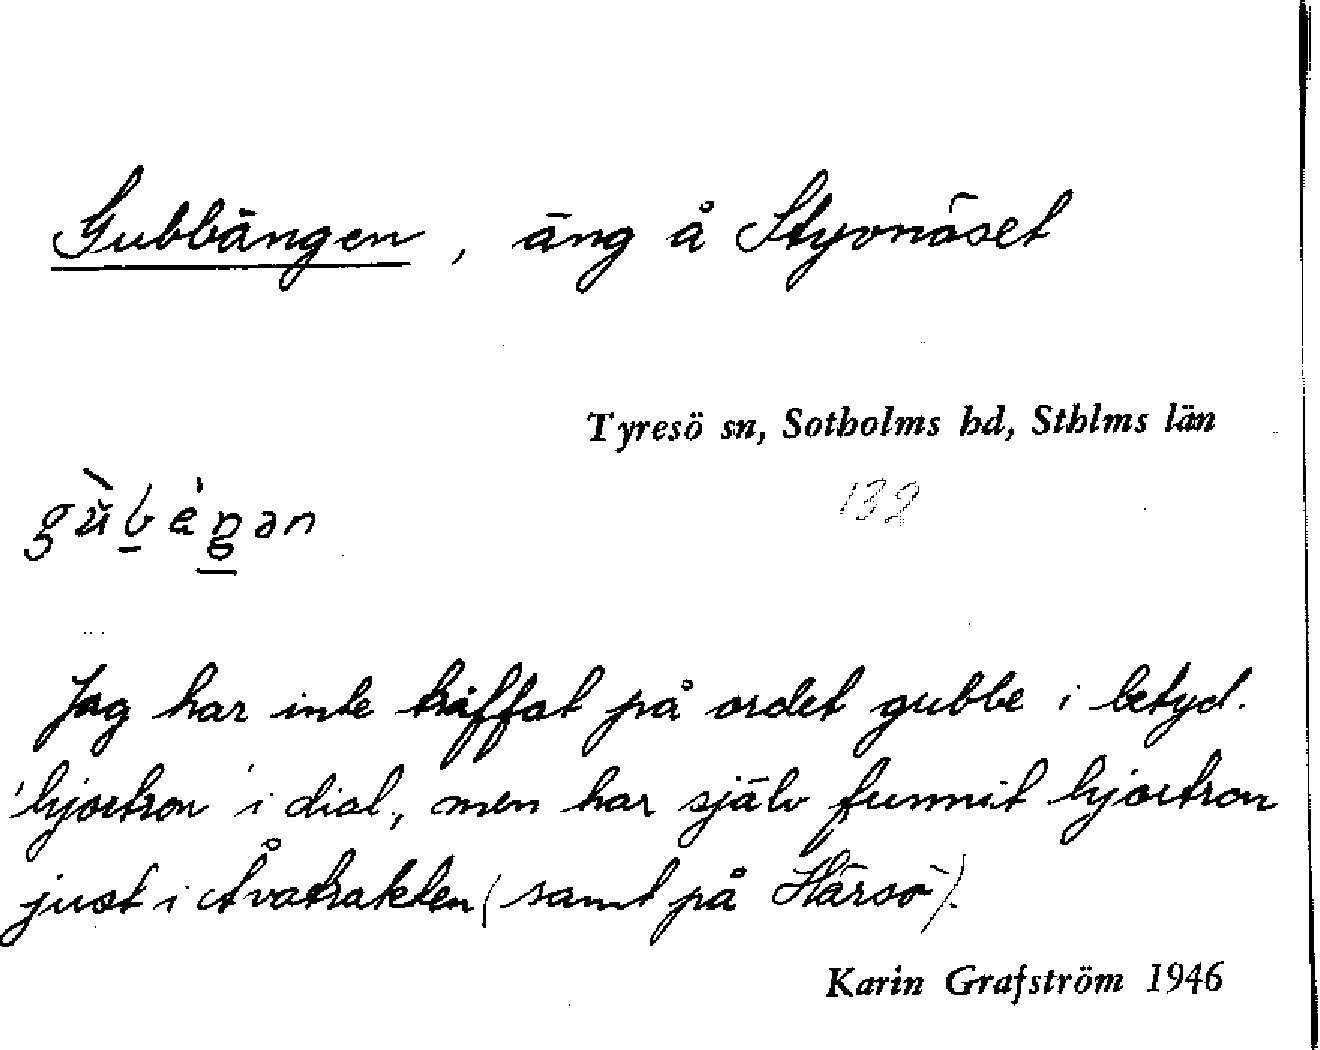 Gubbängen, äng å Styvnäset
Tyresö sn, Sotholms hd, Sthlms län
132
Jag har inte träffat på ordet gubbe i betyd.
'hjortron' i dial., men har själv funnit hjortron
just i Åvatrakten (samt på Härsö).
Karin Grafström 1946